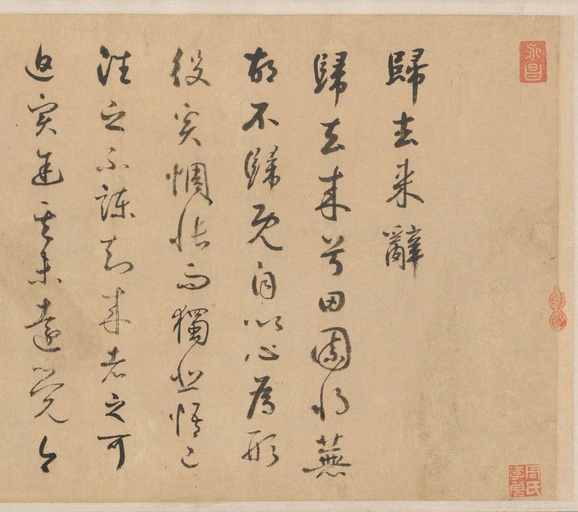 歸去来辭
歸去来兮田園將蕪
胡不歸既自以心為形
役奚惆悵而獨悲悟已
往之不諫知来者之可
追實迷其未遠覺今
永昌